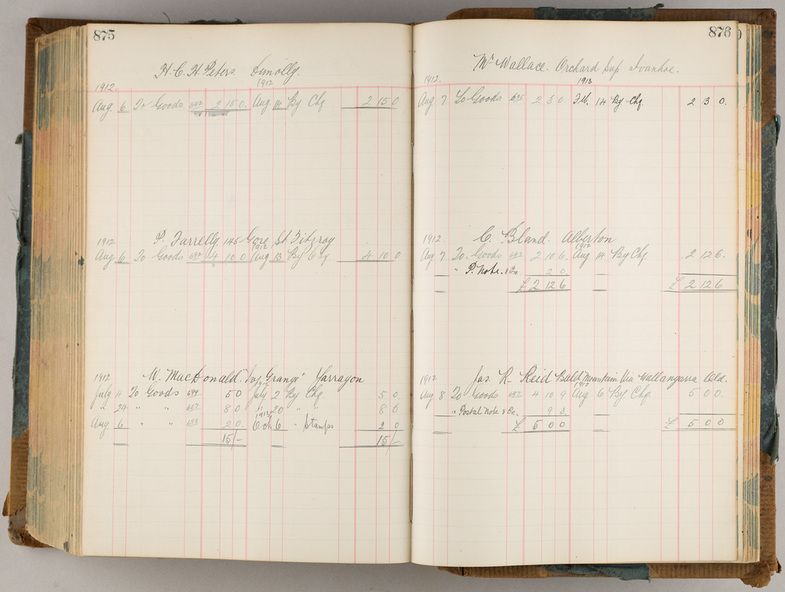 875
H. C. H. Peters
1912 1912
Aug 6 To Goods 2 15 0 Aug By Chq 2 15 0
P. Farrelly 145 Gore St Fitzroy
1912 1912
Aug 6 To Goods 4 10 0 Aug 13 By Chq 4 10 0
W. MacDonald "Grange" Yarragon
1912
July 4 To Goods 5 0 July 2 By Chq 5 0
" 29 " " 8 0 Aug " " 8 0
Aug 6 " " 2 0 6 " Stamps 2 0
15/- 15/-
876
Mr Wallace. Orchard Sup Ivanhoe.
1912 1912
Aug 7 To Goods 2 3 0 14 By Chq 2 3 0
C. Bland. Alberton
1912 1912
Aug 7 To Goods 2 10 6 Aug 14 By Chq 2 12 6
" P. Note 2 0
£ 2 12 6 £ 2 12 6
Jas R. Reid Bald Mountain Via Wallangarra Qld.
1912 1912
Aug 8 To Goods 4 10 9 Aug 6 By Chq 5 0 0
" Postal Note 9 3
£ 5 0 0 £ 5 0 0